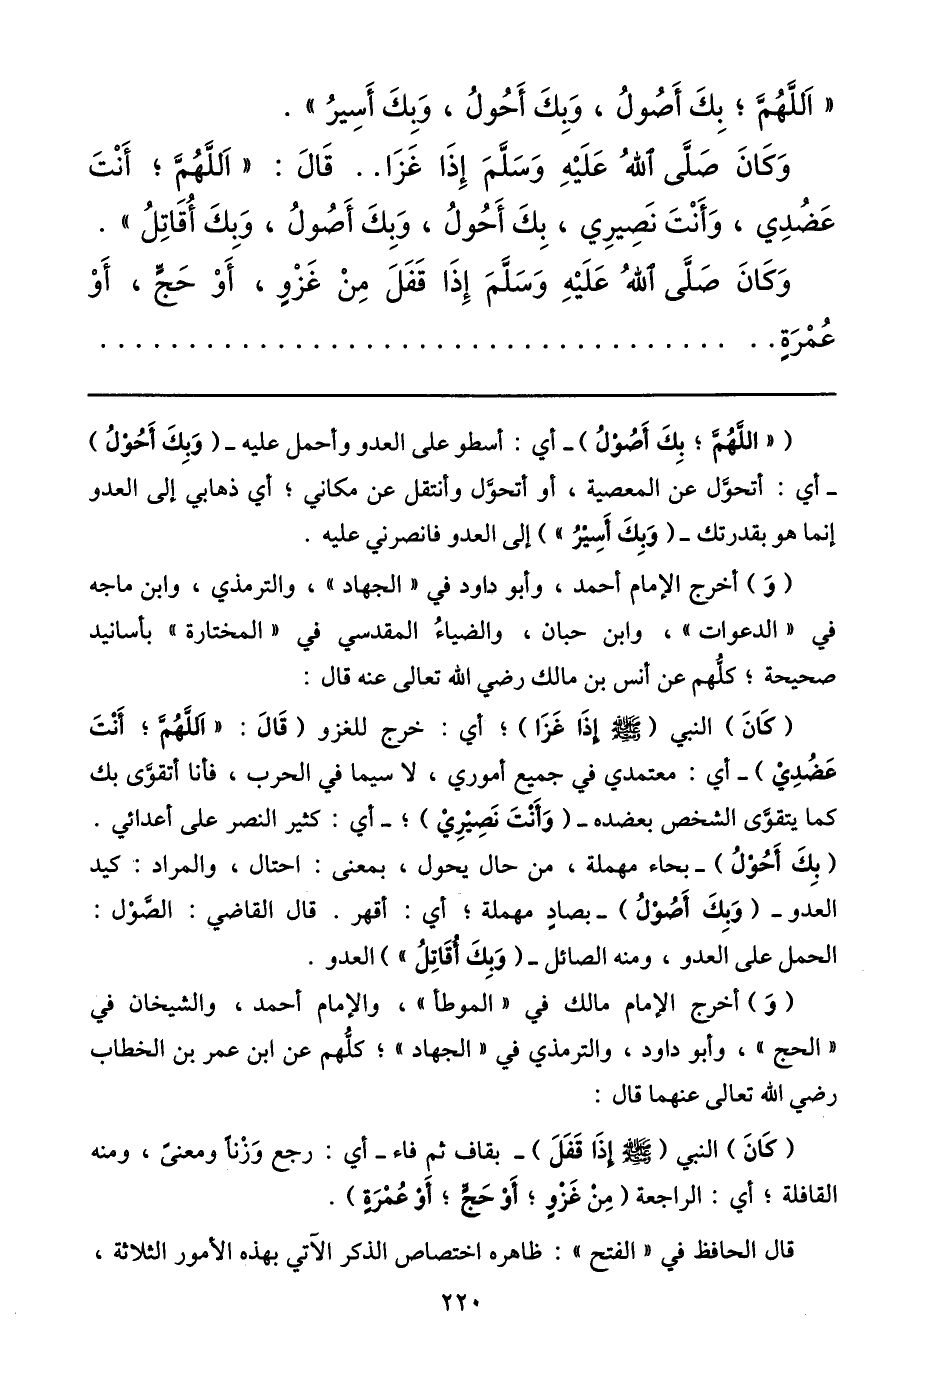 « اَللَّهُمَّ ؛ بِكَ أَصُولُ ، وَبِكَ أَحُولُ ، وَبِكَ أَسِيرُ » .
وَكَانَ صَلَّى ٱللهُ عَلَيْهِ وَسَلَّمَ إِذَا غَزَا.. قَالَ : « اَللَّهُمَّ ؛ أَنْتَ
عَضُدِي ، وَأَنْتَ نَصِيرِي ، بِكَ أَحُولُ ، وَبِكَ أَصُولُ ، وَبِكَ أُقَاتِلُ » .
وَكَانَ صَلَّى ٱللهُ عَلَيْهِ وَسَلَّمَ إِذَا قَفَلَ مِنْ غَزْوٍ ، أَوْ حَجٍّ ، أَوْ
عُمْرَةٍ. . . . . . . . . . . . . . . . . . . . . . . . . . . . . . . . . . . . . .
( « اللَّهُمَّ ؛ بِكَ أَصُوْلُ ) ـ أي : أسطو على العدو وأحمل عليه ـ ( وَبِكَ أَحُوْلُ )
ـ أي : أتحوَّل عن المعصية ، أو أتحوَّل وأنتقل عن مكاني ؛ أي ذهابي إلى العدو
إنما هو بقدرتك ـ ( وَبِكَ أَسِيْرُ » ) إلى العدو فانصرني عليه .
( وَ ) أخرج الإمام أحمد ، وأبو داود في « الجهاد » ، والترمذي ، وابن ماجه
في « الدعوات » ، وابن حبان ، والضياءُ المقدسي في « المختارة » بأسانيد
صحيحة ؛ كلُّهم عن أنس بن مالك رضي الله تعالى عنه قال :
( كَانَ ) النبي ( ﷺ إِذَا غَزَا ) ؛ أي : خرج للغزو ( قَالَ : « اَللَّهُمَّ ؛ أَنْتَ
عَضُدِيْ ) ـ أي : معتمدي في جميع أموري ، لا سيما في الحرب ، فأنا أتقوَّى بك
كما يتقوَّى الشخص بعضده ـ ( وَأَنْتَ نَصِيْرِيْ ) ؛ ـ أي : كثير النصر على أعدائي .
( بِكَ أَحُوْلُ ) ـ بحاء مهملة ، من حال يحول ، بمعنى : احتال ، والمراد : كيد
العدو ـ ( وَبِكَ أَصُوْلُ ) ـ بصادٍ مهملة ؛ أي : أقهر . قال القاضي : الصَّوْل :
الحمل على العدو ، ومنه الصائل ـ ( وَبِكَ أُقَاتِلُ » ) العدو .
( وَ ) أخرج الإمام مالك في « الموطأ » ، والإمام أحمد ، والشيخان في
« الحج » ، وأبو داود ، والترمذي في « الجهاد » ؛ كلُّهم عن ابن عمر بن الخطاب
رضي الله تعالى عنهما قال :
( كَانَ ) النبي ( ﷺ إِذَا قَفَلَ ) ـ بقاف ثم فاء ـ أي : رجع وَزْناً ومعنىً ، ومنه
القافلة ؛ أي : الراجعة ( مِنْ غَزْوٍ ؛ أَوْ حَجٍّ ؛ أَوْ عُمْرَةٍ ) .
قال الحافظ في « الفتح » : ظاهره اختصاص الذكر الآتي بهذه الأمور الثلاثة ،
٢٢٠